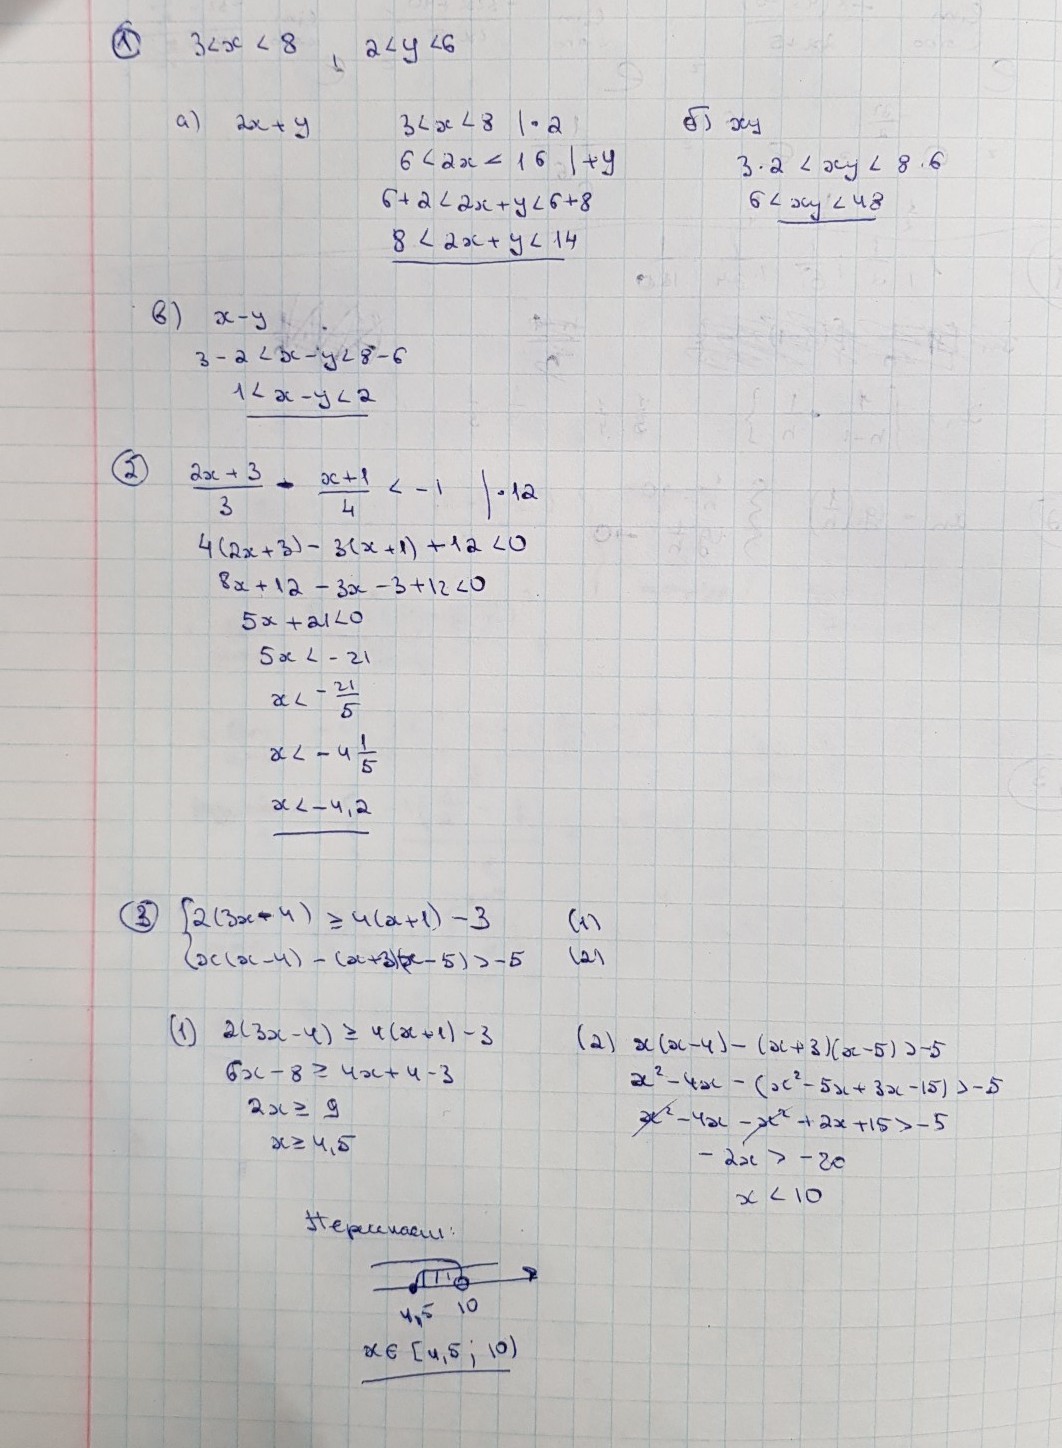 ① 3<x<8, 2<y<6
а) 2x+y
3<x<8 |·2
6<2x<16 |+y
6+2<2x+y<6+8
8<2x+y<14
б) xy
3·2<xy<8·6
6<xy<48
в) x-y
3-2<x-y<8-6
1<x-y<2
② (2x+3)/3 - (x+1)/4 < -1 |·12
4(2x+3)-3(x+1)+12<0
8x+12-3x-3+12<0
5x+21<0
5x<-21
x<-21/5
x<-4 1/5
x<-4,2
③ {2(3x-4) ≥ 4(x+1)-3 (1)
{x(x-4)-(x+3)(x-5)>-5 (2)
(1) 2(3x-4) ≥ 4(x+1)-3
6x-8 ≥ 4x+4-3
2x ≥ 9
x ≥ 4,5
(2) x(x-4)-(x+3)(x-5)>-5
x²-4x-(x²-5x+3x-15)>-5
x²-4x-x²+2x+15>-5
-2x>-20
x<10
4,5 10
x∈[4,5; 10)